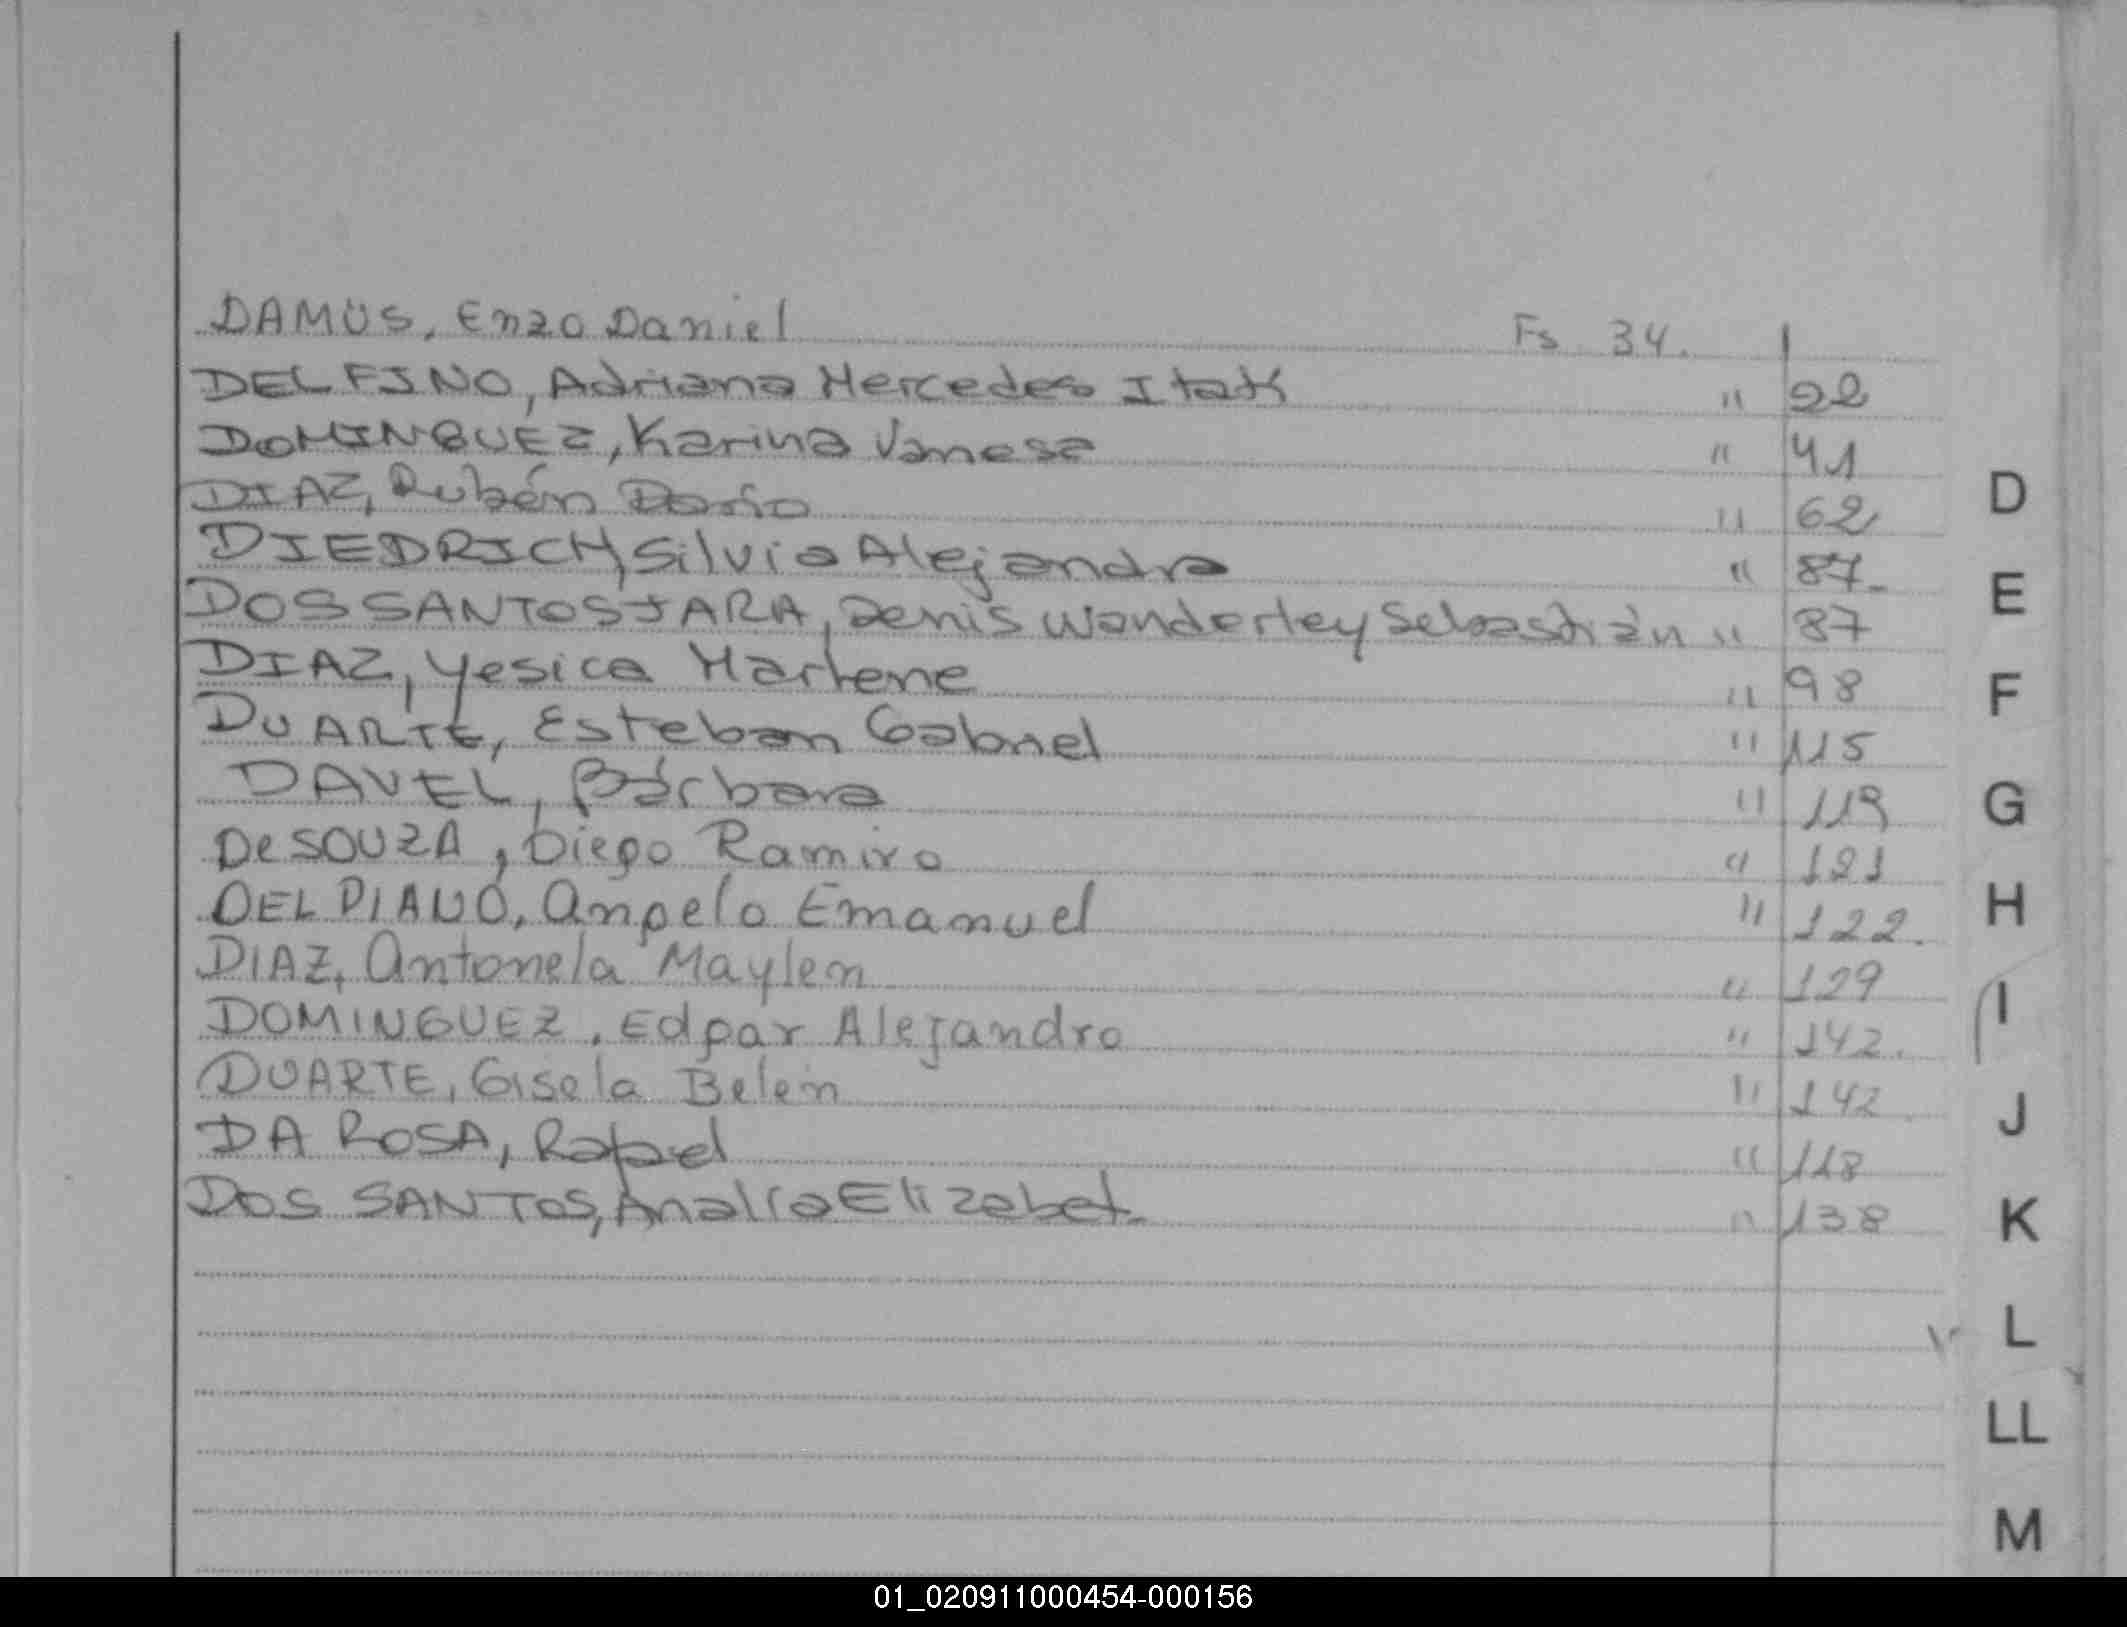 DAMUS, Enzo Daniel Fs 34.
DELFINO, Adriana Mercedes Itatí " 22
DOMINGUEZ, Karina Vanesa " 41
DIAZ, Rubén Darío " 62
DIEDRICH, Silvia Alejandra " 87-
DOS SANTOS JARA, Denis Wanderley Sebastián " 87
DIAZ, Yesica Marlene " 98
DUARTE, Esteban Gabriel " 115
DAVEL, Bárbara " 119
De SOUZA, Diego Ramiro " 121
DEL PIANO, Angelo Emanuel " 122.
DIAZ, Antonela Maylen " 129
DOMINGUEZ, Edgar Alejandro " 142.
DUARTE, Gisela Belén " 142
DA ROSA, Rafael " 118
DOS SANTOS, Analía Elizabet- " 138
D
E
F
G
H
I
J
K
L
LL
M
01_020911000454-000156